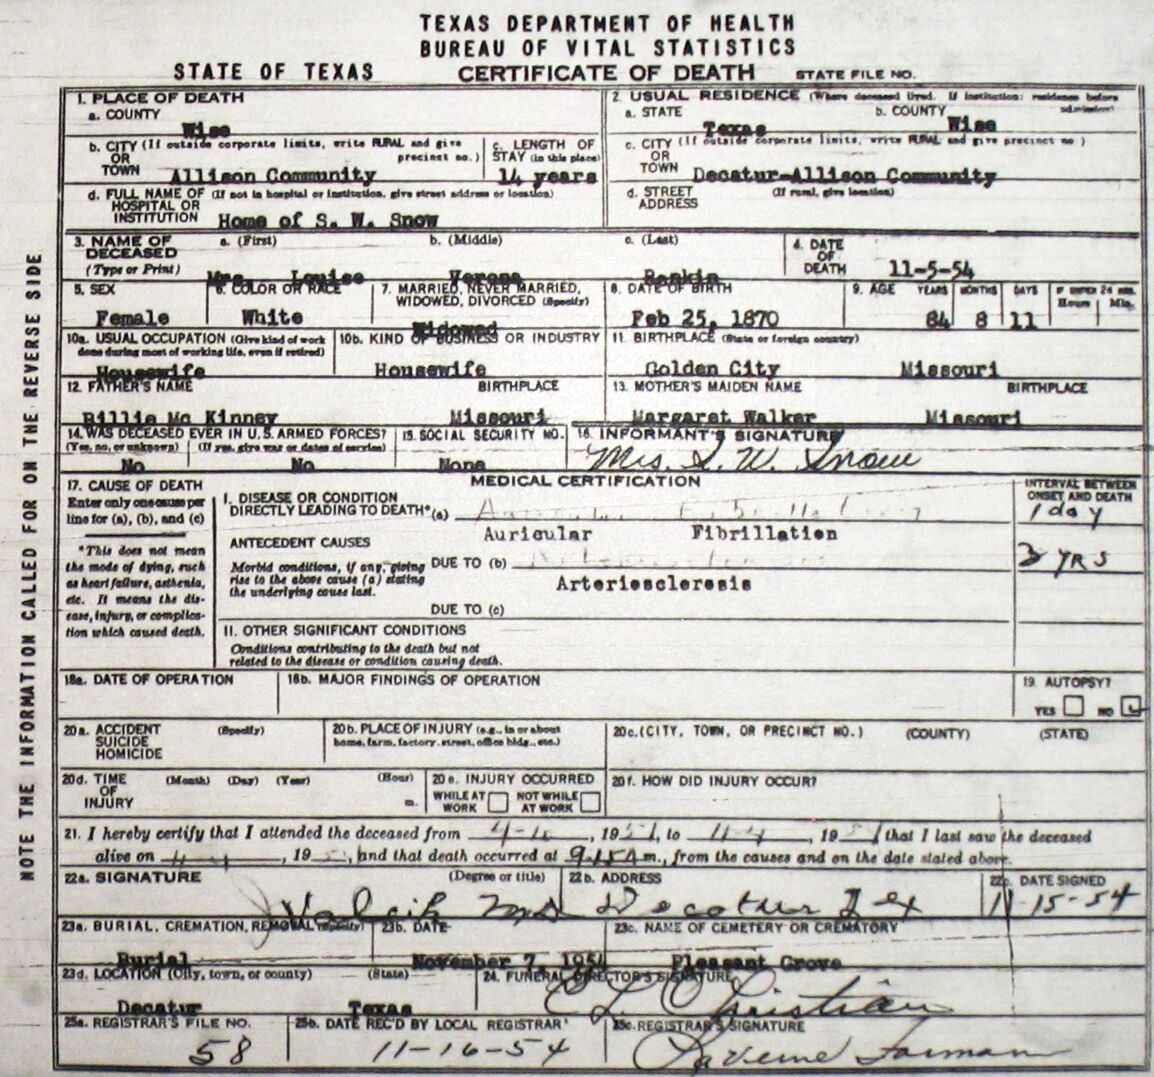 TEXAS DEPARTMENT OF HEALTH
BUREAU OF VITAL STATISTICS
STATE OF TEXAS CERTIFICATE OF DEATH STATE FILE NO.
NOTE THE INFORMATION CALLED FOR ON THE REVERSE SIDE
1. PLACE OF DEATH
a. COUNTY
Wise
2. USUAL RESIDENCE (Where deceased lived. If institution: residence before admission)
a. STATE Texas b. COUNTY Wise
b. CITY (If outside corporate limits, write RURAL and give precinct no.)
OR
TOWN Allison Community
c. LENGTH OF
STAY (in this place)
14 years
c. CITY (If outside corporate limits, write RURAL and give precinct no.)
OR
TOWN Decatur-Allison Community
d. FULL NAME OF (If not in hospital or institution, give street address or location)
HOSPITAL OR
INSTITUTION Home of S. W. Snow
d. STREET (If rural, give location)
ADDRESS
3. NAME OF a. (First) b. (Middle) c. (Last)
DECEASED
(Type or Print) Mrs. Louise Verona Rankin
4. DATE
OF
DEATH 11-5-54
5. SEX
Female
6. COLOR OR RACE
White
7. MARRIED, NEVER MARRIED,
WIDOWED, DIVORCED (Specify)
Widowed
8. DATE OF BIRTH
Feb 25, 1870
9. AGE YEARS MONTHS DAYS IF UNDER 24 HRS.
Hours Min.
84 8 11
10a. USUAL OCCUPATION (Give kind of work
done during most of working life, even if retired)
Housewife
10b. KIND OF BUSINESS OR INDUSTRY
Housewife
11. BIRTHPLACE (State or foreign country)
Golden City Missouri
12. FATHER'S NAME BIRTHPLACE
Billie Mc Kinney Missouri
13. MOTHER'S MAIDEN NAME BIRTHPLACE
Margaret Walker Missouri
14. WAS DECEASED EVER IN U.S. ARMED FORCES?
(Yes, no, or unknown) (If yes, give war or dates of service)
No No
15. SOCIAL SECURITY NO.
None
16. INFORMANT'S SIGNATURE
Mrs. S. W. Snow
17. CAUSE OF DEATH
Enter only one cause per
line for (a), (b), and (c)
*This does not mean
the mode of dying, such
as heart failure, asthenia,
etc. It means the dis-
ease, injury, or complica-
tion which caused death.
MEDICAL CERTIFICATION
I. DISEASE OR CONDITION
DIRECTLY LEADING TO DEATH*(a)
Auricular Fibrillation
ANTECEDENT CAUSES
Morbid conditions, if any, giving
rise to the above cause (a) stating
the underlying cause last.
DUE TO (b)
Arteriesclerosis
DUE TO (c)
II. OTHER SIGNIFICANT CONDITIONS
Conditions contributing to the death but not
related to the disease or condition causing death.
INTERVAL BETWEEN
ONSET AND DEATH
1 day
3 yrs
18a. DATE OF OPERATION
18b. MAJOR FINDINGS OF OPERATION
19. AUTOPSY?
YES NO
20a. ACCIDENT (Specify)
SUICIDE
HOMICIDE
20b. PLACE OF INJURY (e.g., in or about
home, farm, factory, street, office bldg., etc.)
20c. (CITY, TOWN, OR PRECINCT NO.) (COUNTY) (STATE)
20d. TIME (Month) (Day) (Year) (Hour)
OF
INJURY m.
20e. INJURY OCCURRED
WHILE AT WORK NOT WHILE AT WORK
20f. HOW DID INJURY OCCUR?
21. I hereby certify that I attended the deceased from , 19 , to , 19 , that I last saw the deceased
alive on , 19 , and that death occurred at 9:15A m., from the causes and on the date stated above.
22a. SIGNATURE (Degree or title)
MD
22b. ADDRESS
Decatur Tex
22c. DATE SIGNED
11-15-54
23a. BURIAL, CREMATION, REMOVAL (Specify)
Burial
23b. DATE
November 7, 1954
23c. NAME OF CEMETERY OR CREMATORY
Pleasant Grove
23d. LOCATION (City, town, or county) (State)
Decatur Texas
24. FUNERAL DIRECTOR'S SIGNATURE
C. L. Christian
25a. REGISTRAR'S FILE NO.
58
25b. DATE REC'D BY LOCAL REGISTRAR
11-16-54
25c. REGISTRAR'S SIGNATURE
LaVerne